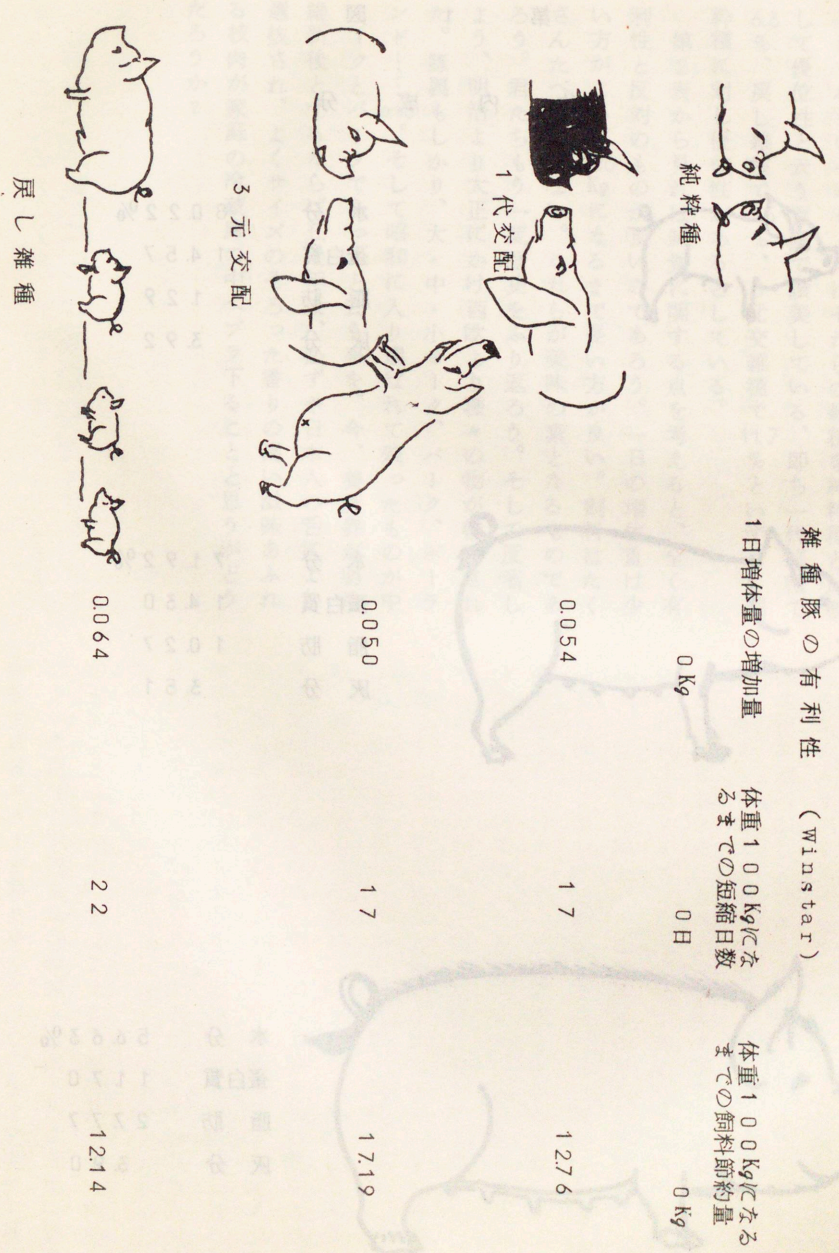 雑種豚の有利性 (Winstar)
1日増体量の増加量
体重100Kgにな
るまでの短縮日数
体重100Kgになる
までの飼料節約量
純粋種 0Kg 0日 0Kg
1代交配 0.054 17 12.76
3元交配 0.050 17 17.19
戻し雑種 0.064 22 12.14